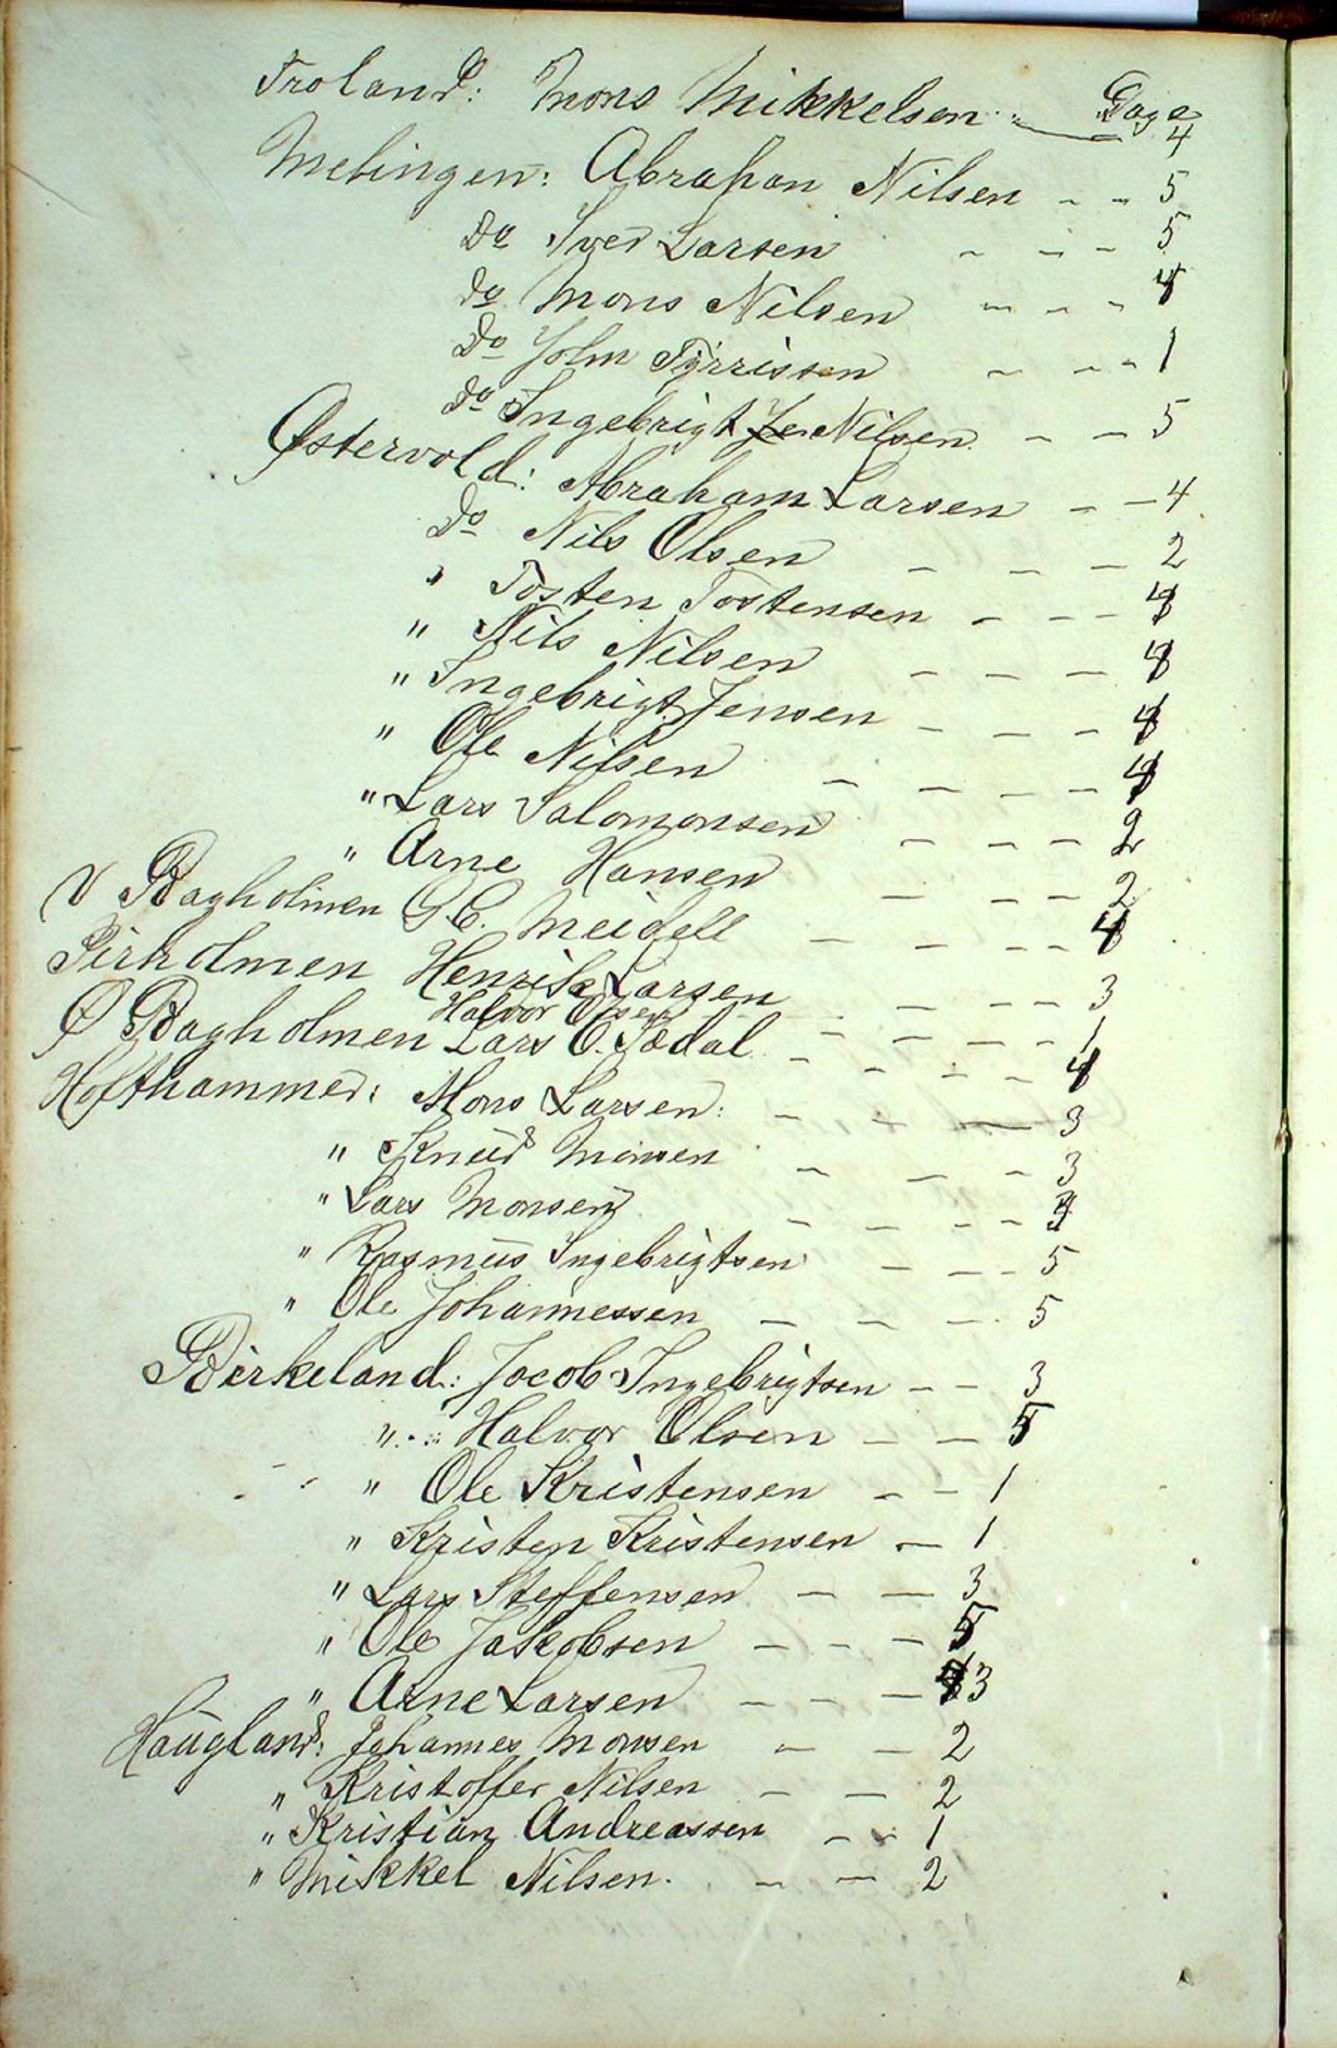 Froland: Mons Mikkelsen Dage 4
Melingen: Abrahan Nilsen - - 5
Do Iver Larsen - - - 5
do Mons Nilsen - - - 4
Do John Tÿrrissen - - - 1
do Ingebrigt Je Nilsen - - 5
Østervold: Abraham Larsen - - 4
Do Nils Olsen - - - 2
" Tosten Tostensen - - - 4
" Nils Nilsen - - - 4
" Ingebrigt Jensen - - - 4
" Ole Nilsen - - - - 4
" Lars Salomonsen - - - 2
" Arne Hansen - - - 2
V Bagholmen Meidell - - - - 4
Pirholmen Henrik Larsen - - - - 3
Halvor Olsen - - - - 1
Ø Bagholmen Lars O. Jødal - - - - 4
Hofthammer: Mons Larsen: - - - 3
" Knud Monsen - - - 3
" Lars Monsen - - - -
" Rasmus Ingebrigtsen - - - 5
" Ole Johannessen - - - 5
Birkeland: Jocob Ingebrigtsen - - 3
" Halvor Olsen - - 5
" Ole Kristensen - - 1
" Kristen Kristensen - 1
" Lars Steffensen - - 3
" Ole Jakobsen - - - 5
" Arne Larsen - - - 3
Haugland: Johannes Monsen - - 2
" Kristoffer Nilsen - - 2
" Kristian Andreassen - - 1
" Mikkel Nilsen. - - 2